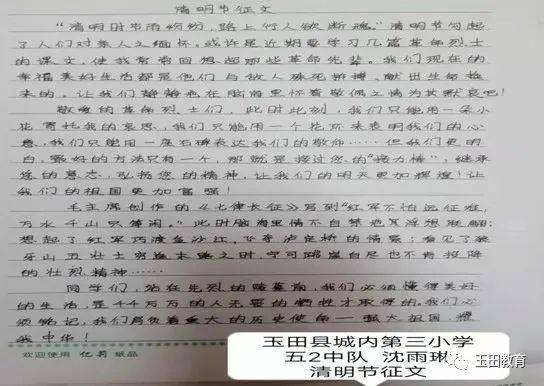 清明节征文
“清明时节雨纷纷，路上行人欲断魂。”清明节勾起
了人们对亲人之缅怀。或许是近期要学习几篇革命烈士
的课文，使我常常回想起那些革命先辈。我们现在的
幸福美好生活都是他们与敌人殊死拼搏、献出生命换
来的。让我们静静地在脑海里怀着敬佩之情为其默哀吧！
敬爱的革命烈士们，此时此刻，我们只能用一朵小
花寄托我的哀思，我们只能用一个花环来表明我们的心
意，我们只能用一座石碑表达我们的敬仰……但我们更明
白，最好的方法只有一个，那就是接过您的“接力棒”，继承
您的意志，弘扬您的精神，让我们的明天更加辉煌！让
我们的祖国更加富强！
毛主席创作的《七律长征》写到“红军不怕远征难，
万水千山只等闲。”此时脑海里情不自禁地浮想联翩：
想起了红军巧渡金沙江、飞夺泸定桥的情景；看见了狼
牙山五壮士穷途末路之时，宁可跳崖自尽也不肯投降
的壮烈精神……
同学们，站在先烈的陵墓前，我们必须懂得美好
的生活，是千千万万的人无畏的牺牲才取得的，我们必
须铭记，我们肩负着重大的历史使命——强大祖国，振
我中华！
欢迎使用 亿莉 纸品
玉田县城内第三小学
五2中队 沈雨琳
清明节征文
玉田教育